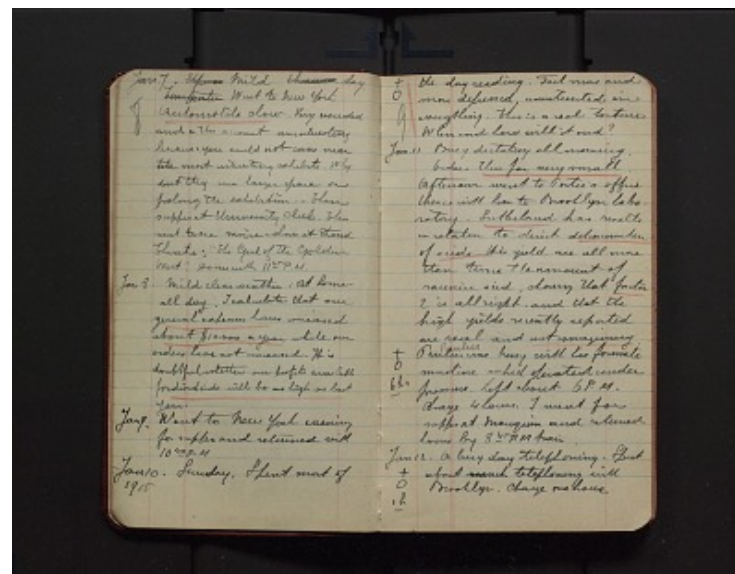 Jan 7. Mild day
Went to New York
Automobile show. Very crowded
and on this account unsatisfactory
because you could not come near
the most interesting exhibits. Why
dont they use larger space or
prolong the exhibition. Then
supper at University Club. Then
went to see movie show at Strand
Theatre: "The Girl of the Golden
West". Home with 11 P.M.
Jan 8. Mild clear weather. At home
all day. I calculate that our
general expenses have increased
about a year while our
orders have not increased. It is
doubtful whether our profits available
for dividends will be as high as last
year.
Jan 9. Went to New York evening
for supper and returned with
10 P.M
Jan 10. Sunday. Spent most of
1915
the day reading. Feel and
more depressed, uninterested in
everything. This is a real torture
When and how will it end?
Jan. 11 Busy dictating all morning
orders thus far very small.
Afternoon went to Porter's office
then with him to Brooklyn labo-
ratory. Sutherland has results
in relation to direct
of acids the yield are all more
than times the amount of
showing that factor
2 is all right. and that the
high yields recently reported
are real and not imaginary
busy with his formate
machine which elevated under
pressure. left about 6 P.M.
Charge 4 hours. I went for
supper at and returned
home by 8 P.M train
Jan 12. A busy day telephoning. Spent
about telephoning with
Brooklyn. Charge one hour.